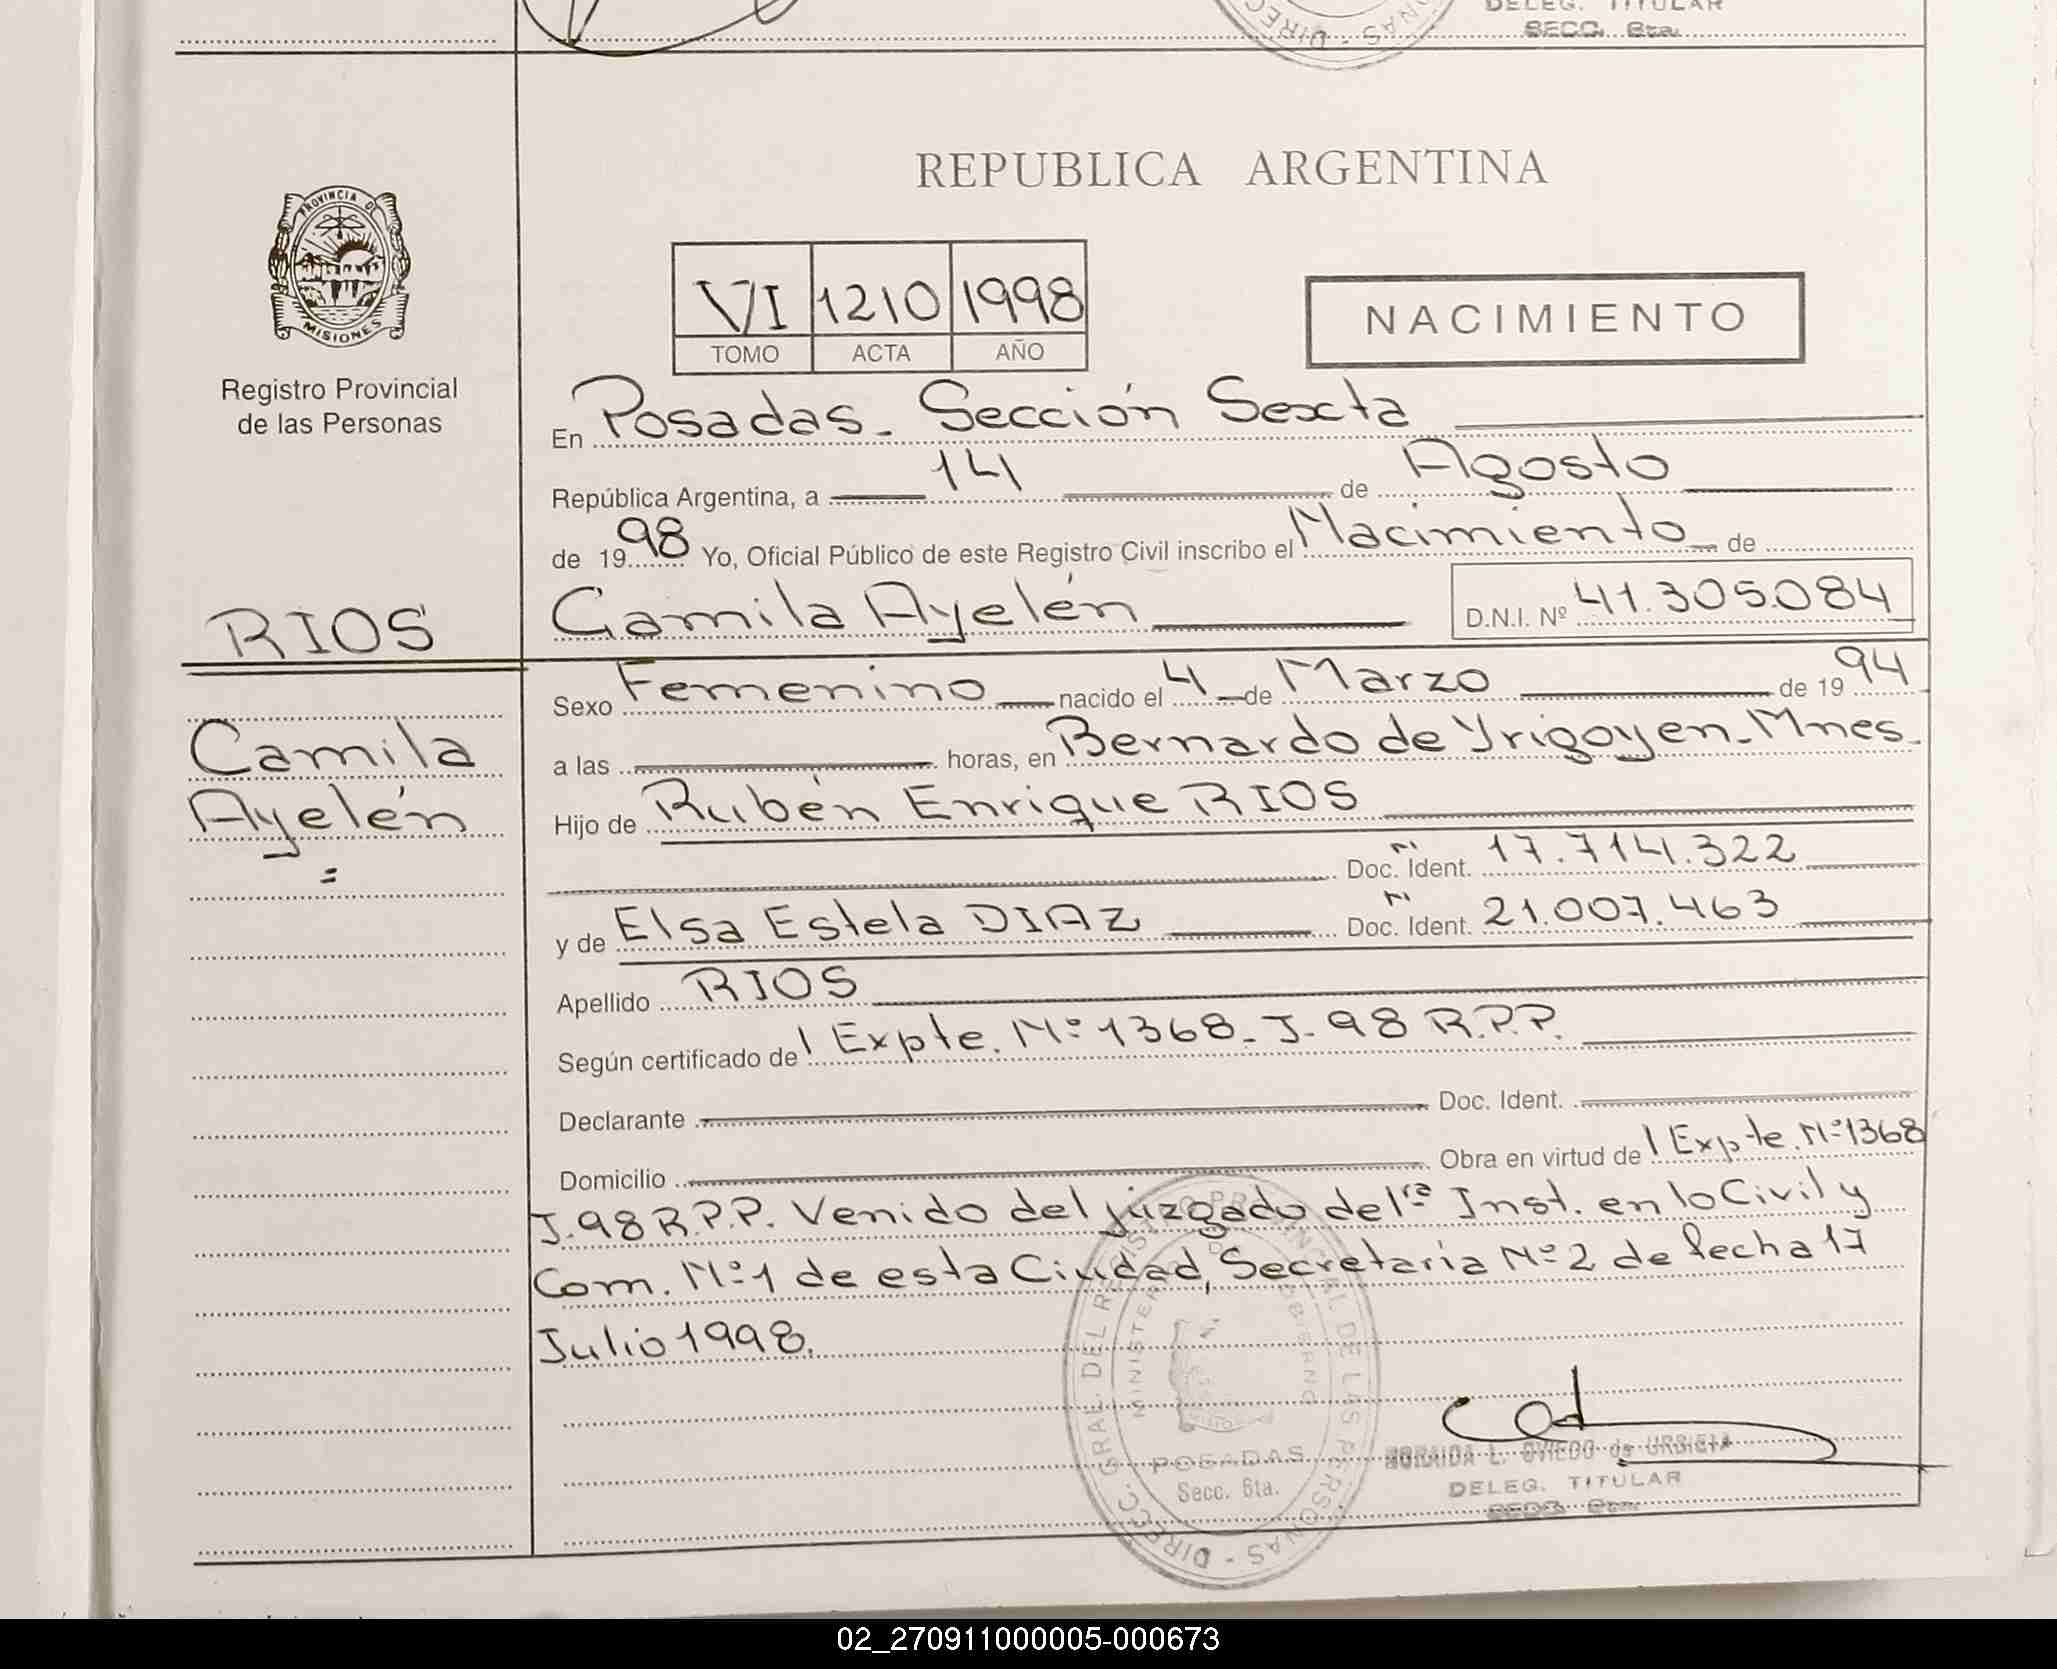 DELEG. TITULAR
SECC. 6ta.
DIREC
NAS
REPUBLICA ARGENTINA
PROVINCIA DE
MISIONES
Registro Provincial
de las Personas
VI 1210 1998
TOMO ACTA AÑO
NACIMIENTO
En Posadas. Sección Sexta
República Argentina, a 14 de Agosto
de 1998 Yo, Oficial Público de este Registro Civil inscribo el Nacimiento de
RIOS
Camila Ayelén D.N.I. Nº 41.305.084
Camila
Ayelén
=
Sexo Femenino nacido el 4 de Marzo de 1994
a las horas, en Bernardo de Yrigoyen. Mnes.
Hijo de Rubén Enrique RIOS
Doc. Ident. 17.714.322
y de Elsa Estela DIAZ Doc. Ident. 21.007.463
Apellido RIOS
Según certificado de l Expte. Nº 1368. J. 98 R.P.P.
Declarante Doc. Ident.
Domicilio Obra en virtud de l Expte. Nº 1368
J. 98 R.P.P. Venido del juzgado de 1ra Inst. en lo Civil y
Com. Nº 1 de esta Ciudad, Secretaria Nº 2 de fecha 17
Julio 1998.
DIRECC. GRAL. DEL REGISTRO PROVINCIAL DE LAS PERSONAS
MINISTERIO GOBIERNO
POSADAS
Secc. 6ta.
L. OVIEDO de
DELEG. TITULAR
SECC. 6ta.
02_270911000005-000673